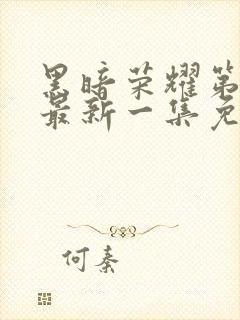 黑暗荣耀第
最新一集免
何秦